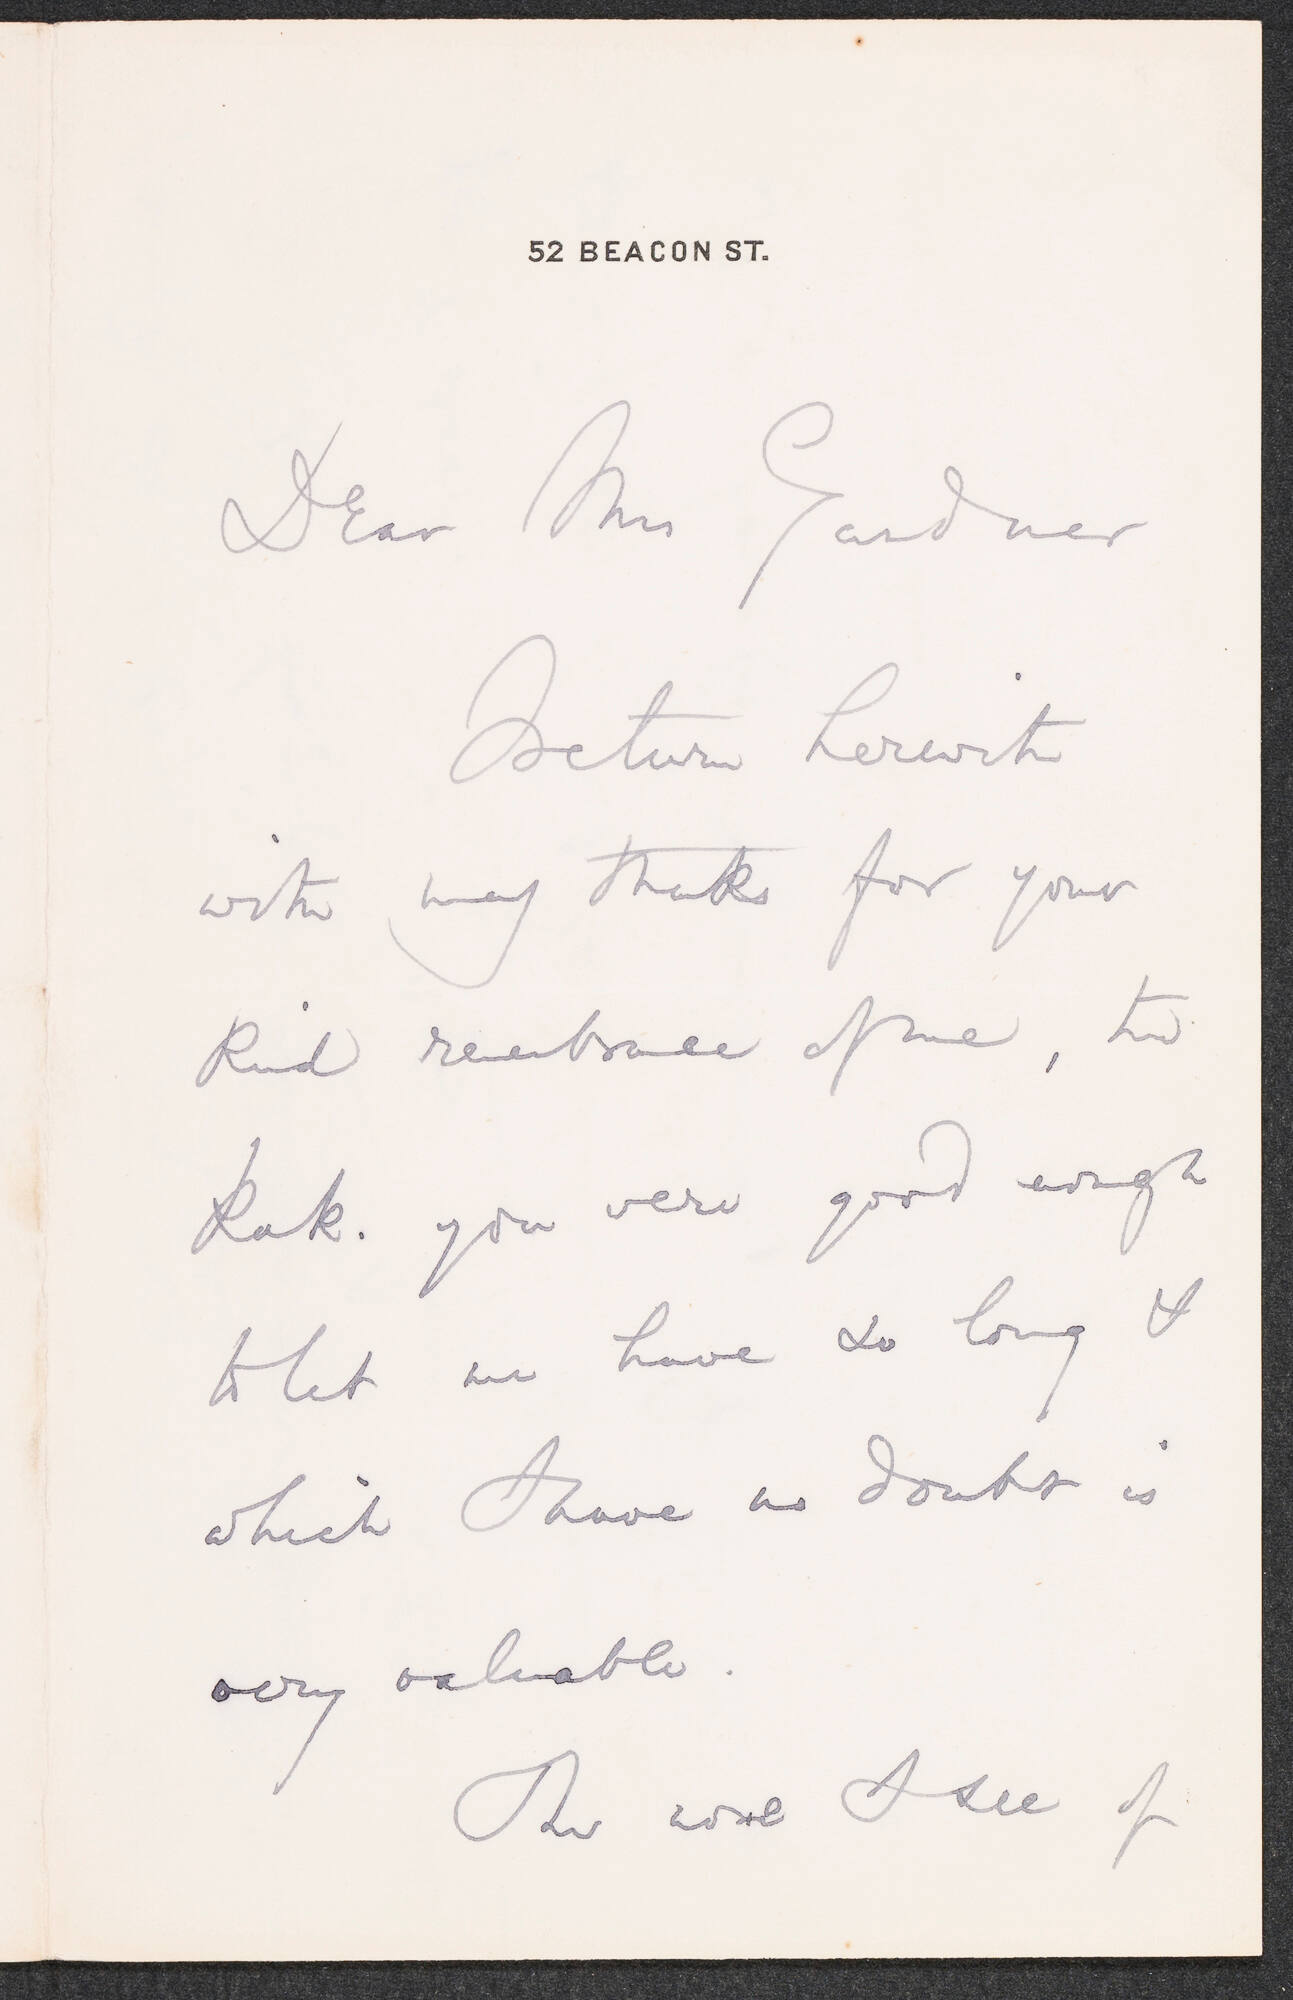 52 BEACON ST.
Dear Mrs Gardner
I return herewith
with many thanks for your
kind remembrance of me, the
you were good enough
to let me have so long &
which I have no doubt is
very valuable.
The more I see of